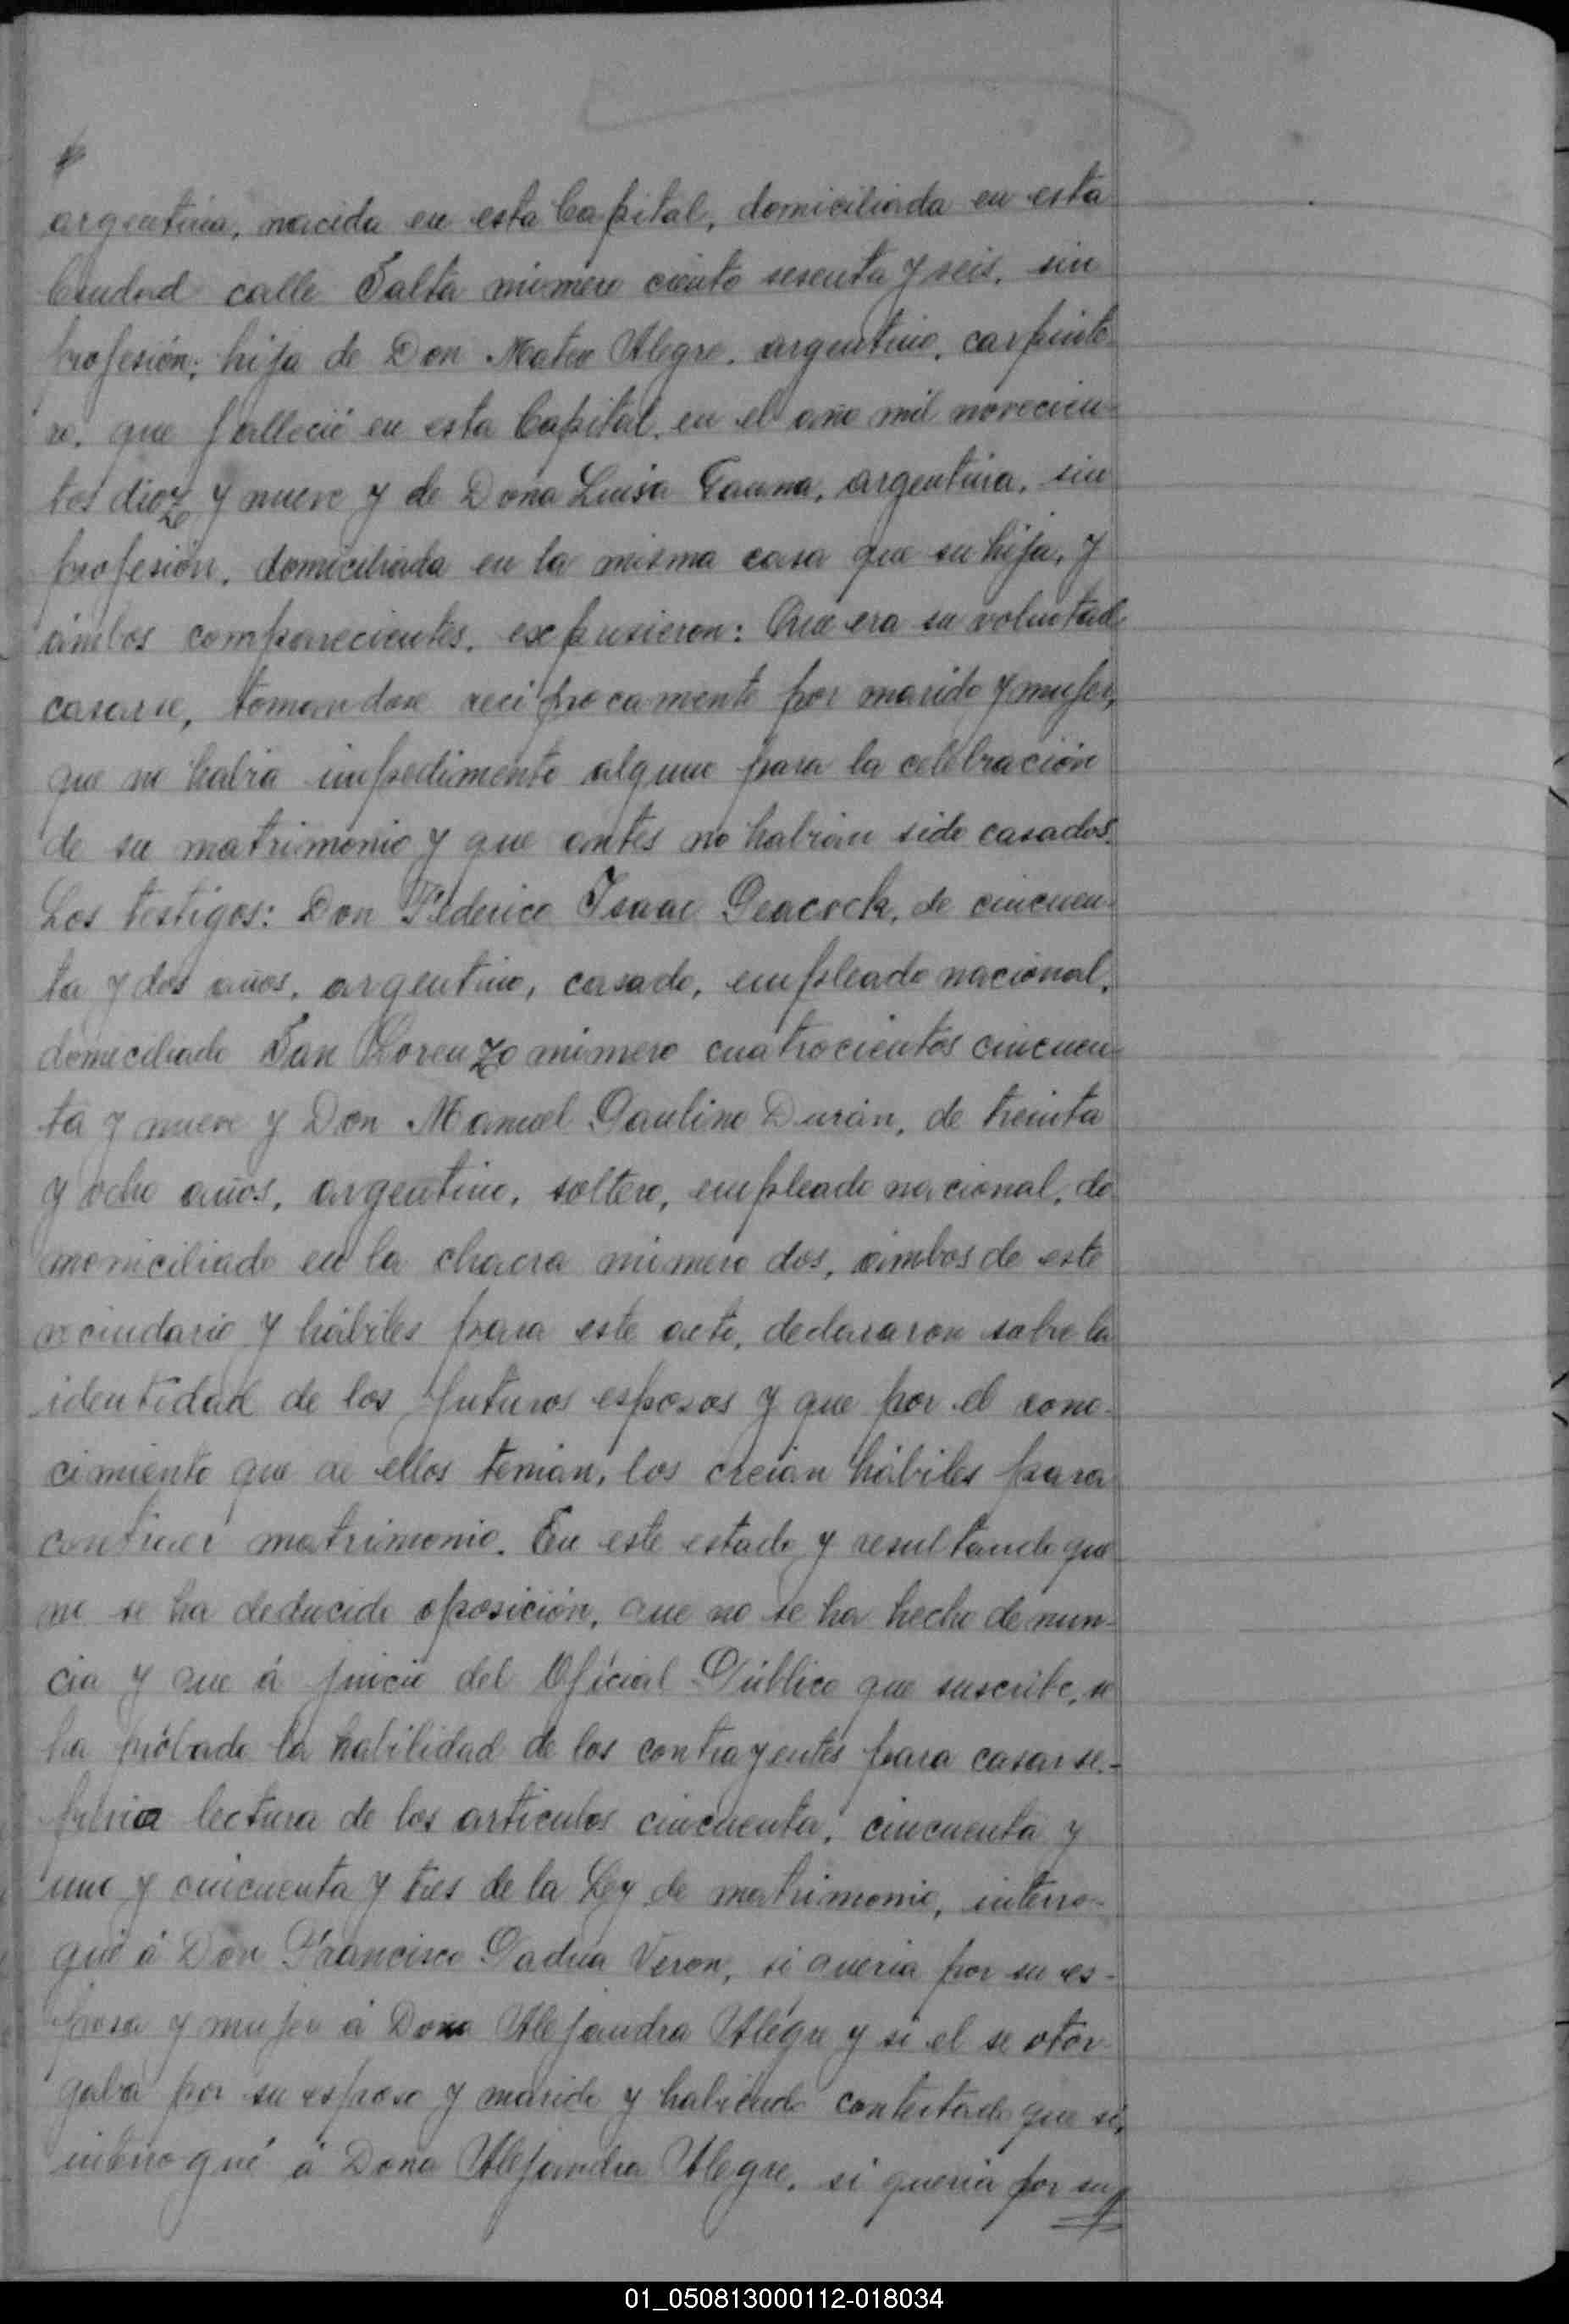 argentina, nacida en esta Capital, domiciliada en esta
Ciudad calle Salta número ciento sesenta y seis, sin
profesión; hija de Don Mateo Alegre, argentino, carpinte-
ro, que falleció en esta Capital, en el año mil novecien-
tos diez y nueve y de Doña Luisa Gauna, argentina, sin
profesión, domiciliada en la misma casa que su hija, y
ámbos comparecientes, expusieron: Que era su voluntad
casarse, tomandose reciprocamente por marido y mujer,
que no habia impedimento alguno para la celebración
de su matrimonio y que antes no habian sido casados.
Los testigos: Don Federico Isaac Peacock, de cincuen-
ta y dos años, argentino, casado, empleado nacional,
domiciliado San Lorenzo número cuatrocientos cincuen-
ta y nueve y Don Manuel Paulino Durán, de treinta
y ocho años, argentino, soltero, empleado nacional, do
moniciliado en la chacra número dos, ámbos de este
vecindario y hábiles para este acto, declararon sobre la
identidad de los futuros esposos y que por el cono-
cimiento que de ellos tenian, los creian hábiles para
contraer matrimonio. En este estado y resultando que
no se ha deducido oposición, que no se ha hecho denun-
cia y que á juicio del Oficial Público que suscribe, se
ha probado la habilidad de los contrayentes para casarse.-
prévia lectura de los articulos cincuenta, cincuenta y
uno y cincuenta y tres de la Ley de matrimonio, interro-
gué á Don Francisco Padua Veron, si queria por su es-
posa y mujer á Doña Alejandra Alegre y si el se otor
gaba por su esposo y marido y habiendo contestado que si,
interrogué á Doña Alejandra Alegre, si queria por su
01_050813000112-018034